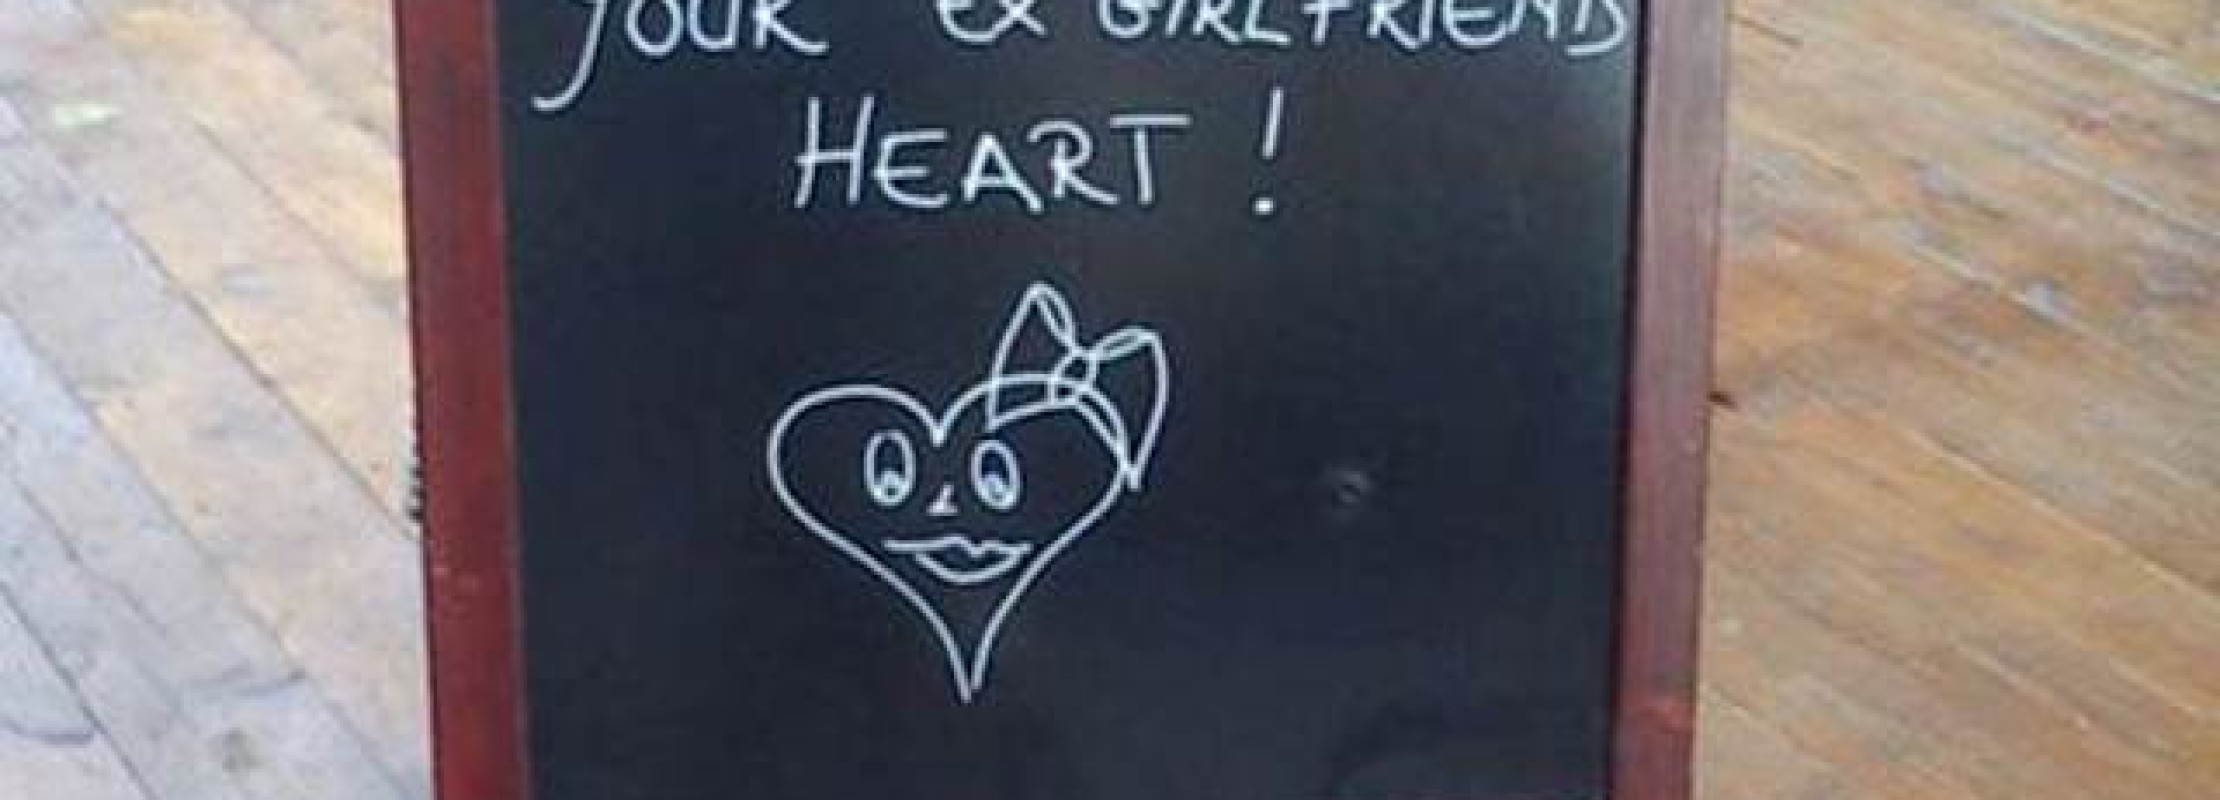 YOUR EX GIRLFRIENDS
HEART !